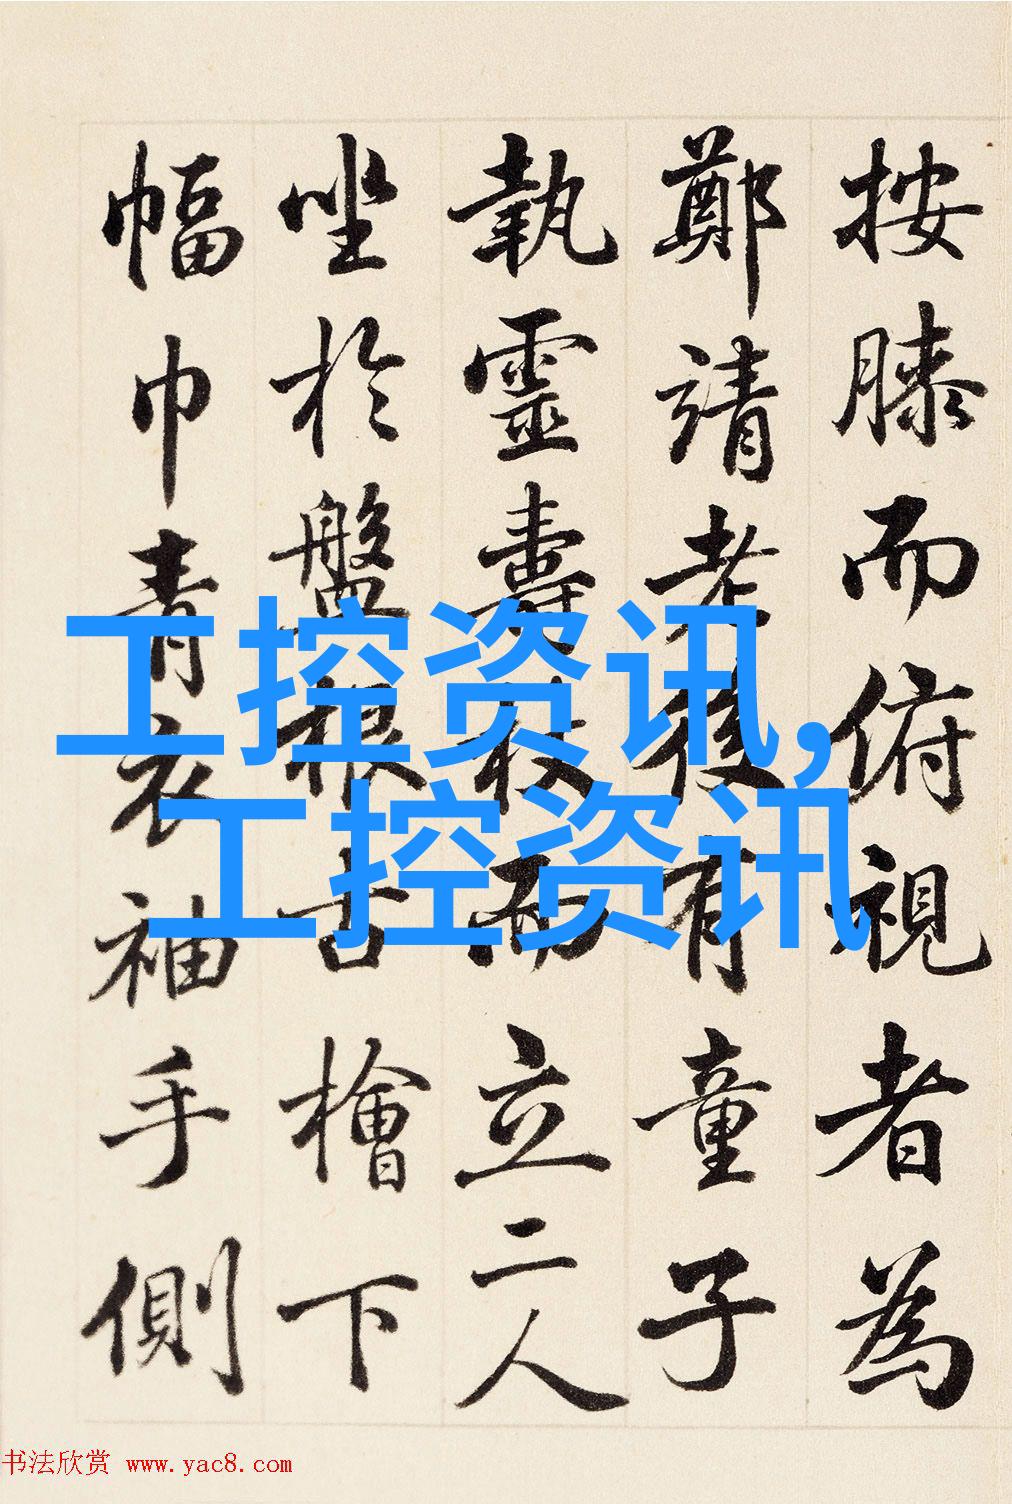 按膝而俯視者為
鄭靖老後有童子
執靈壽杖而立二人
坐於盤根古檜下
幅巾青衣袖手側
工控资讯,
工控资讯
书法欣赏 www.yac8.com